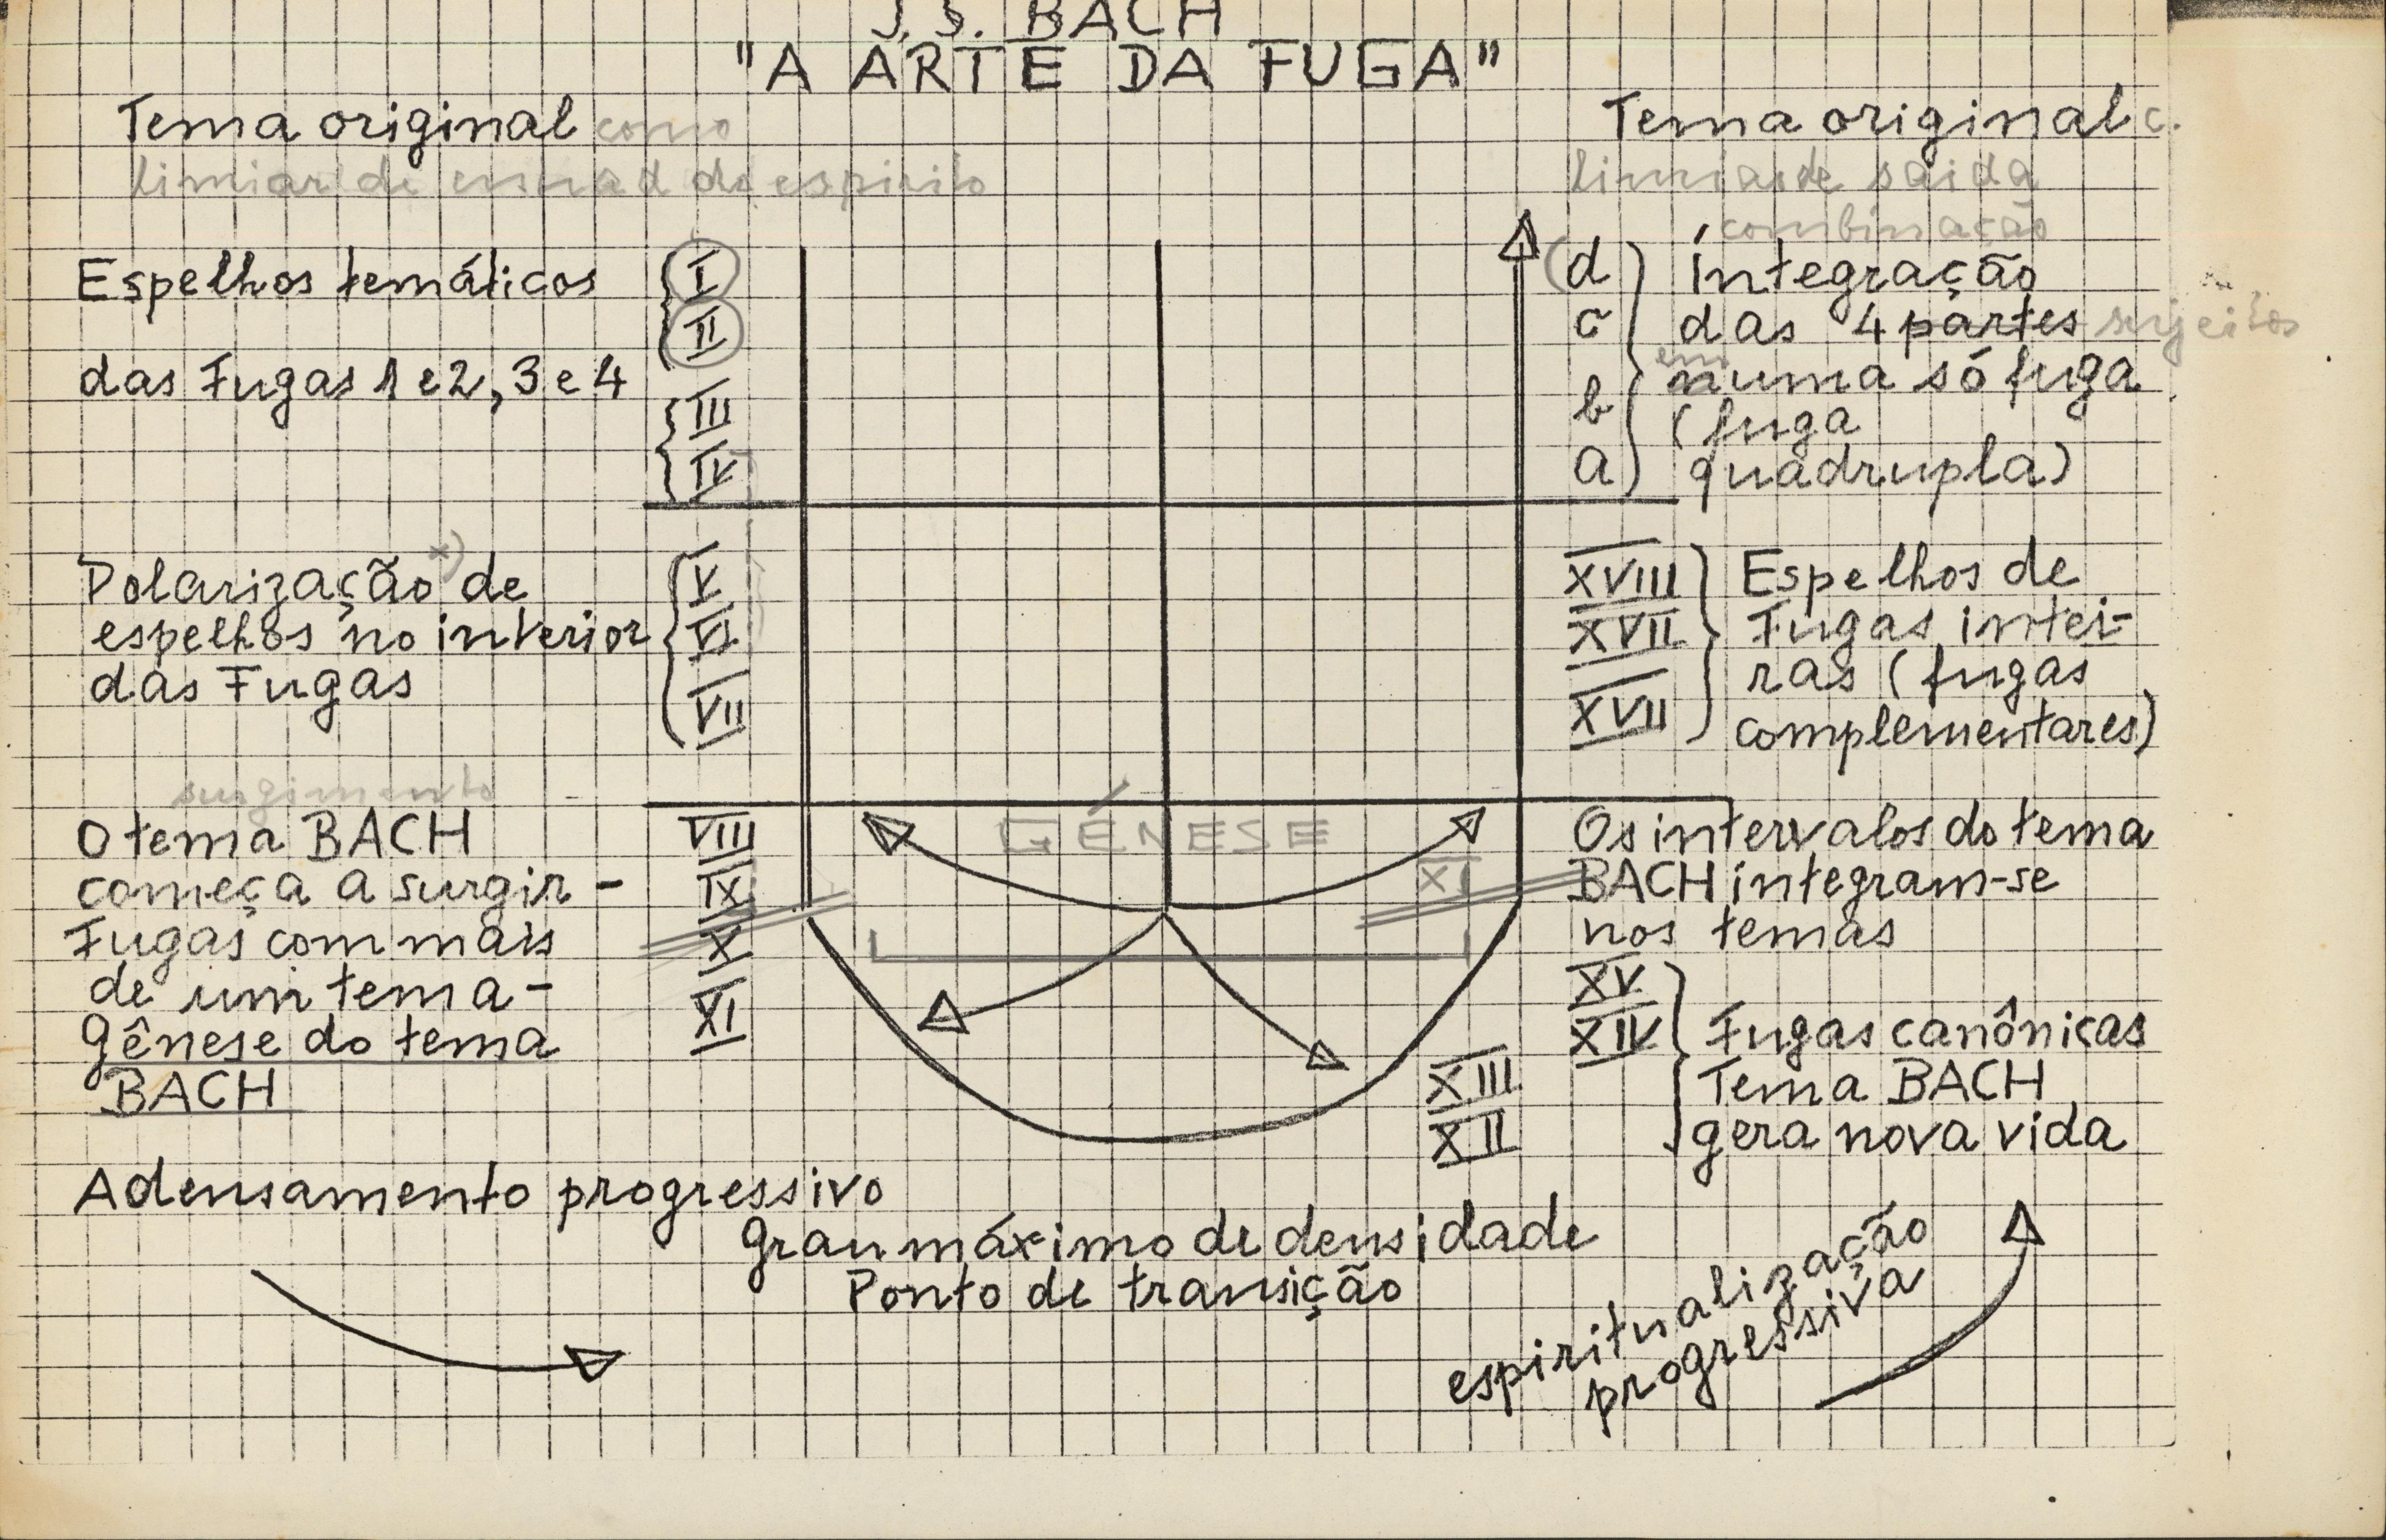 J. S. BACH
"A ARTE DA FUGA"
Tema original como
limiar de do espirito
Espelhos temáticos
das Fugas 1 e 2, 3 e 4
I
II
III
IV
Polarização x) de
espelhos no interior
das Fugas
V
VI
VII
surgimento
O tema BACH
começa a surgir -
Fugas com mais
de um tema -
Gênese do tema
BACH
VIII
IX
X
XI
GÉNESE
XI
Tema original c.
limiar de saida
combinação
(d
c
b
a
integração
das 4 partes sujeitos
em
numa só fuga
(fuga
quadrupla)
XVIII
XVII
XVII
Espelhos de
Fugas intei-
ras (fugas
complementares)
Os intervalos do tema
BACH integram-se
nos temas
XV
XIV
XIII
XII
Fugas canônicas
Tema BACH
gera nova vida
Adensamento progressivo
Grau máximo de densidade
Ponto de transição
espiritualização
progressiva